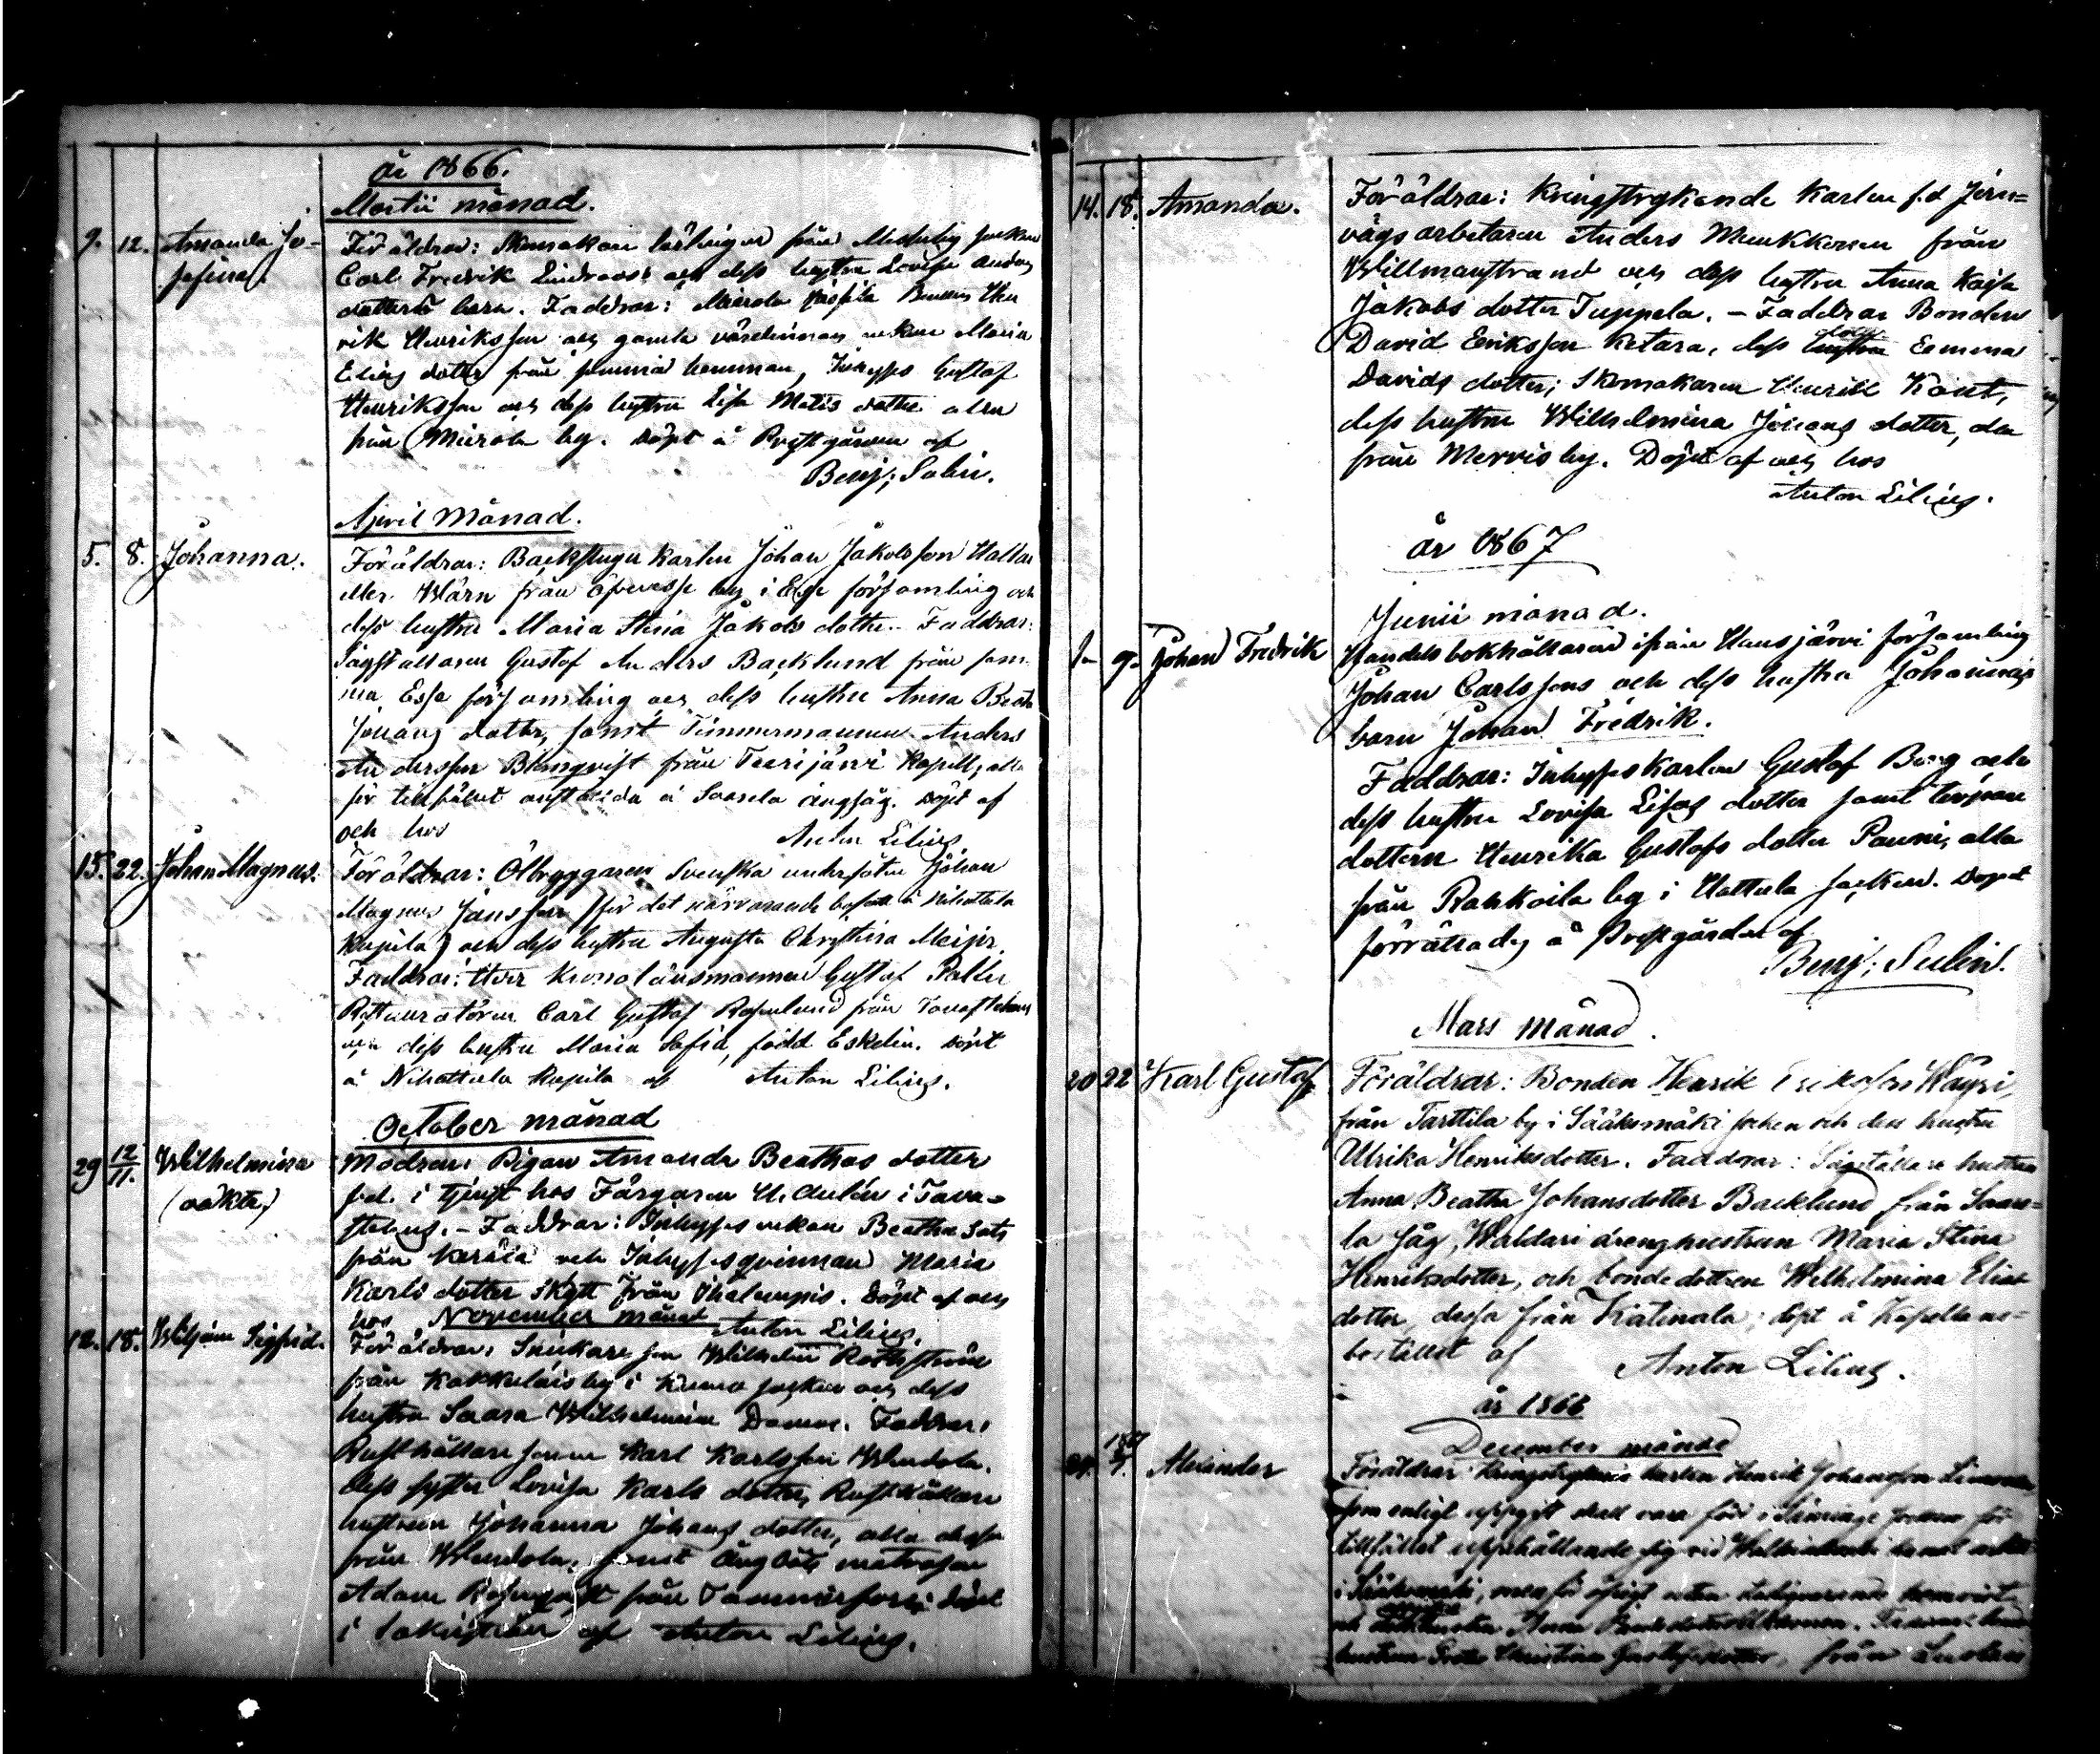 år 1866.
Martii månad.
9. 12. Amanda Jo-
sefina.
Föräldrar: Skomakare lärlingen från
Carl Fredrik och dess hustru Lovisa Anders
dotters barn. Faddrar: Mierola
rik Henriksson och gamla värdinnan enkan Maria
Elias dotter från samma hemman, Inhyses Gustaf
Henriksson och dess hustru Lisa Matts dotter alla
från Mierola by. Döpt å Prestgården af
Benj: Salin.
April Månad.
5. 8. Johanna.
Föräldrar: Backstugu karlen Johan Jakobsson
eller Wärn från öfveresse by i Esse församling och
dess hustru Maria Stina Jakobs dotter. Faddrar:
Sågställaren Gustaf Anders Backlund från sam-
ma Esse församling och dess hustru Anna Beata
Johans dotter, samt Timmermannen Anders
Andersson Blomqvist från Teerijärvi Kapell, alla
för tillfället å Saarela ångsåg. Döpt af
och hos Anton Lilius
15. 22. Johan Magnus.
Föräldrar: Ölbryggaren Svenska undersåten Johan
Magnus Jansson (för det närvarande å Nihattula
Rapila) och dess hustru Augusta Chrystina Meijer.
Faddrar: Herr Kronolänsmannen Gustaf
Restauratören Carl Gustaf Rosenlund från Tavastehus
och dess hustru Maria Sofia, född Eskelin. Döpt
å Nihattula Rapila af Anton Lilius.
October månad
29 12/11. Wilhelmina
(oäkta)
Modren: Pigan Amanda Beathas dotter
f.d. i tjenst hos Färgaren H. Aulén i Tava-
stehus. - Faddrar: Inhyses enkan Beatha
från Karala och Inhysesqvinnan Maria
Karls dotter Skytt från Ihalempis. Döpt af och
hos Anton Lilius.
November månad
12. 18. Wiljam Sigfrid.
Föräldrar: Snickare son Wilhelm
från Kakkulais by i Kumo socken och dess
hustru Saara Wilhelmina. Faddrar:
Rusthållare sonen Karl Karlsson
dess syster Lovisa Karls dotter, Rusthållare
hustrun Johanna Johans dotter, alla dessa
från samt Ångbåts matrosen
Adam Rosenqvist från Tammerfors; döpt
i sakristian af Anton Lilius.
14. 18. Amanda.
Föräldrar: Kringstrykande Karlen f.d Jern-
vägsarbetaren Anders Munkkonen från
Willmanstrand och dess hustru Anna Kaisa
Jakobs dotter Tuppela. - Faddrar Bonden
David Eriksson Ketara, dess dotter Eemma
Davids dotter; Skomakaren Henrik
dess hustru Wilhelmina Johans dotter,
från Mervis by. Döpt af och hos
Anton Lilius.
år 1867
Junii månad.
1. 9. Johan Fredrik
Handels bokhållaren ifrån Hausjärvi församling
Johan Carlssons och dess hustru Johannas
barn Johan Fredrik.
Faddrar: Inhyses Karlen Gustaf Berg och
dess hustru Lovisa Lisas dotter samt torpare
dottern Henrika Gustafs dotter alla
från Rahkoila by i Hattula socken. Döpt
förrättades å Prestgården af
Benj: Salin.
Mars Månad.
20 22 Karl Gustaf
Föräldrar: Bonden Henrik Eriksson Wäyri,
från Tarttila by i Sääksmäki socken och dess hustru
Ulrika Henriksdotter. Faddrar: Sågställare hustrun
Anna Beatha Johansdotter Backlund från Saare-
la såg, Waldari drenghustrun Maria Stina
Henriksdotter, och bonde dottren Wilhelmina Elias
dotter, dessa från Katinala; döpt å Kapellans-
bostället af Anton Lilius.
år 1866
December månad
Föräldrar Kringstrykande karlen Henrik Johansson
som enligt uppgift skall vara född i socken för
tillfället uppehållande sig vid
i Sääksmäki, men för öfrigt utan
och hustru Anna
hustrun Greta Christina Gustafsdotter, från